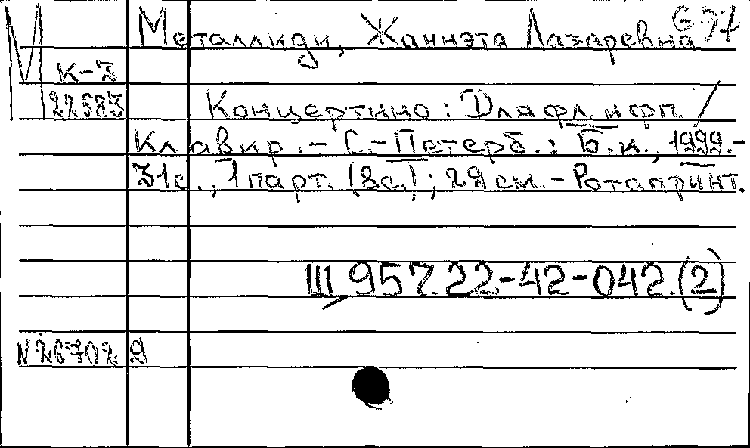 М Металлиди, Жаннэта Лазаревна
К-7
22583 Концертино: Для фл. и фп. /
Клавир. - С.-Петерб.: Б.и., 1999.-
31с., 1 парт. (8с.); 29 см. - Ротапринт.
Ш 957.22-42-042.(2)
N 26702 9